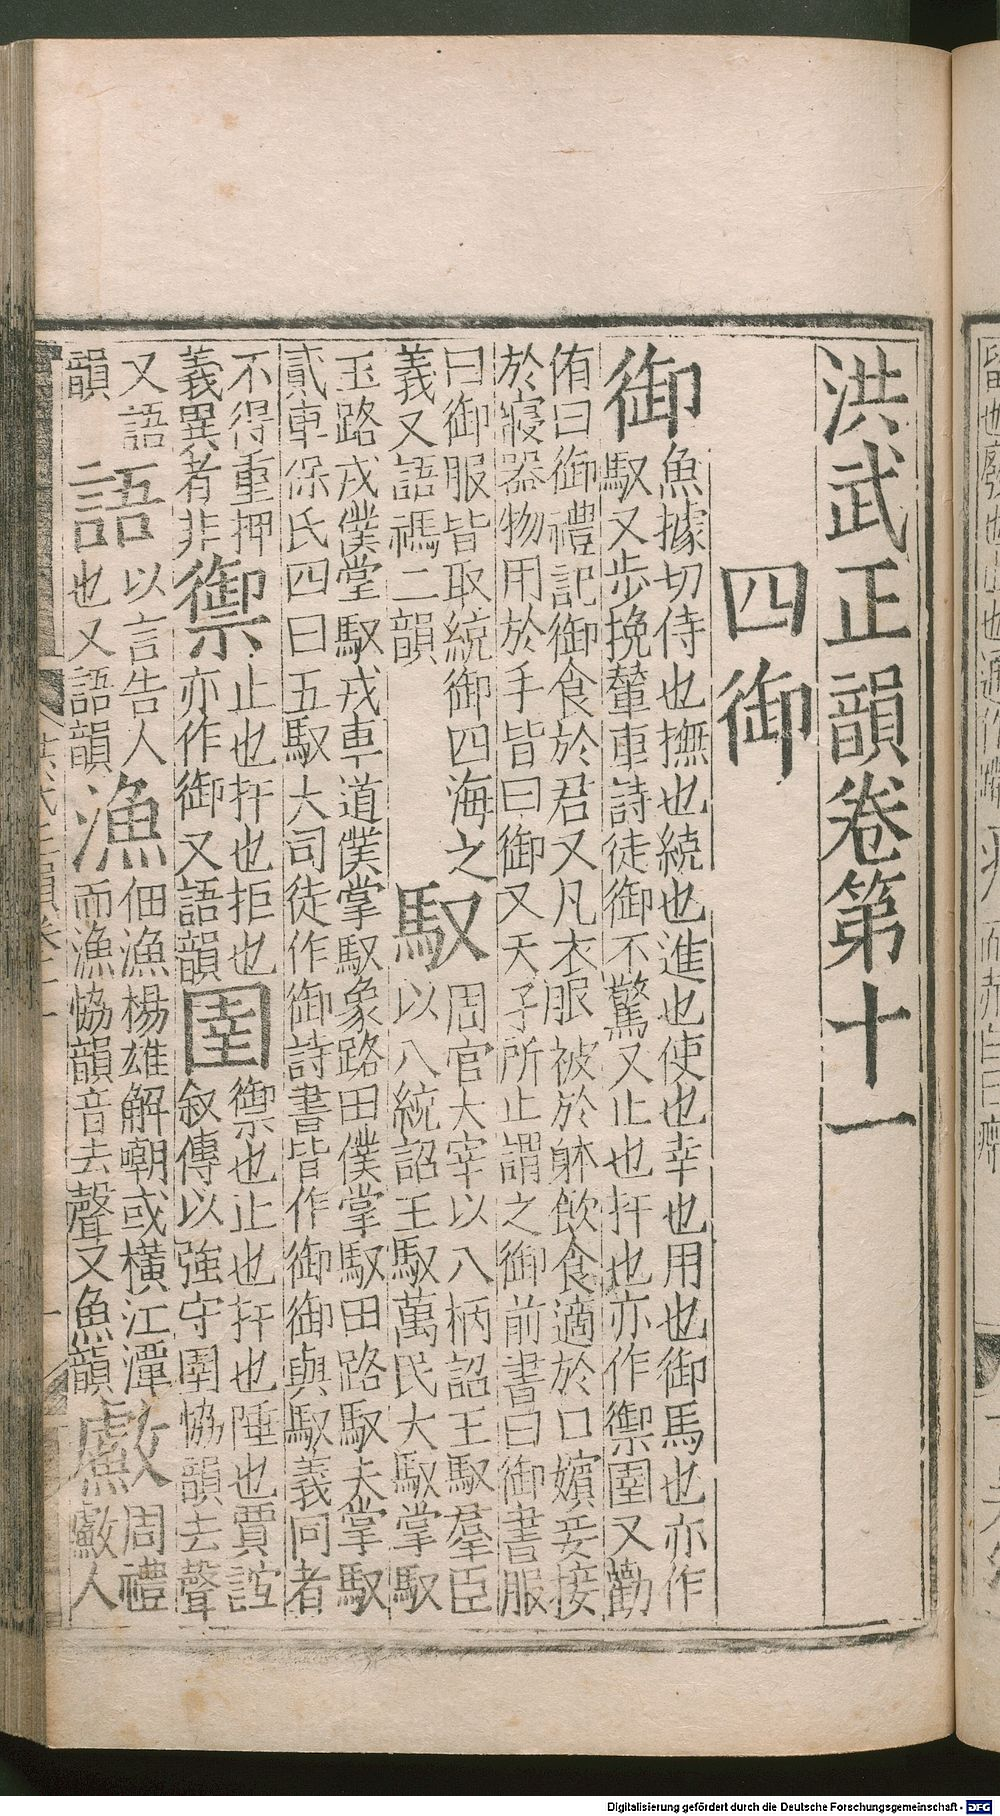 洪武正韻卷第十一
四御
御
魚據切侍也撫也統也進也使也幸也用也御馬也亦作
馭又步挽輦車詩徒御不驚又止也扞也亦作禦圉又勸
侑曰御禮記御食於君又凡衣服被於躰飲食適於口嬪妾接
於寢器物用於手皆曰御又天子所止謂之御前書曰御書服
曰御服皆取統御四海之
義又語禡二韻
馭
周官大宰以八柄詔王馭羣臣
以八統詔王馭萬民大馭掌馭
玉路戎僕掌馭戎車道僕掌馭象路田僕掌馭田路馭夫掌馭
貳車保氏四曰五馭大司徒作御詩書皆作御御與馭義同者
不得重押
義異者非
禦
止也扞也拒也
亦作御又語韻
圉
禦也止也扞也陲也賈誼
叙傳以強守圉恊韻去聲
又語
韻
語
以言告人
也又語韻
漁
佃漁楊雄解嘲或橫江潭
而漁恊韻音去聲又魚韻
䱷
周禮
䱷人
Digitalisierung gefördert durch die Deutsche Forschungsgemeinschaft - DFG